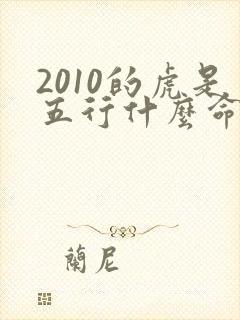 2010的虎是
五行什麼命
蘭尼